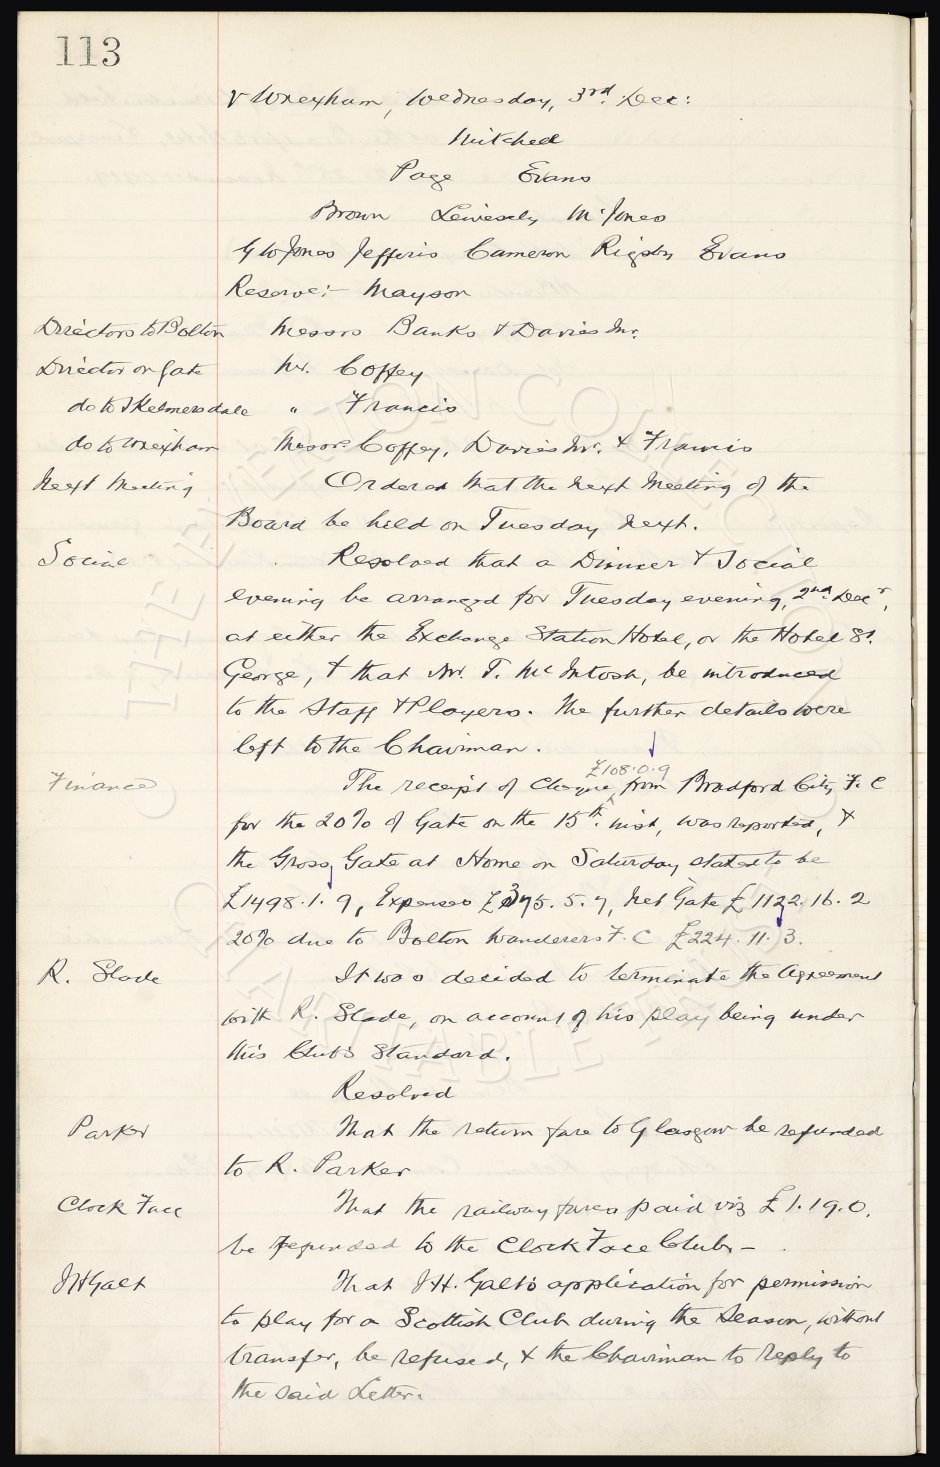 113
v Wrexham, Wednesday, 3rd. Dec:
Mitchell
Page Evans
Brown Lewesely McJones
G W Jones Jefferis Cameron Rigsby Evans
Reserve:- Mayson
Directors to Bolton Messrs Banks & Davies Jnr.
Director on Gate Mr. Coffey
do to Skelmersdale " Francis
do to Wrexham Messrs Coffey, Davies Jnr. & Francis
Next Meeting Ordered that the next Meeting of the
Board be held on Tuesday next.
Social Resolved that a Dinner & Social
evening be arranged for Tuesday evening, 2nd. Decr,
at either the Exchange Station Hotel, or the Hotel St.
George, & that Mr. T. McIntosh, be introduced
to the Staff & Players. The further details were
left to the Chairman.
£108.0.9
Finance The receipt of Cheque, from Bradford City F. C
for the 20% of Gate on the 15th. inst, was reported, &
the Gross Gate at Home on Saturday stated to be
£1498.1.9, Expenses £375.5.7, Net Gate £1122.16.2
20% due to Bolton Wanderers F. C £224.11.3.
R. Slade It was decided to terminate the Agreement
with R. Slade, on account of his play being under
this Club's Standard.
Resolved
Parker That the return fare to Glasgow be refunded
to R. Parker
Clock Face That the railway fares paid viz £1.19.0.
be refunded to the Clock Face Club -
J H Galt That J H. Galt's application for permission
to play for a Scottish Club during the Season, without
transfer, be refused, & the Chairman to reply to
the said Letter.
LIVERPOOL